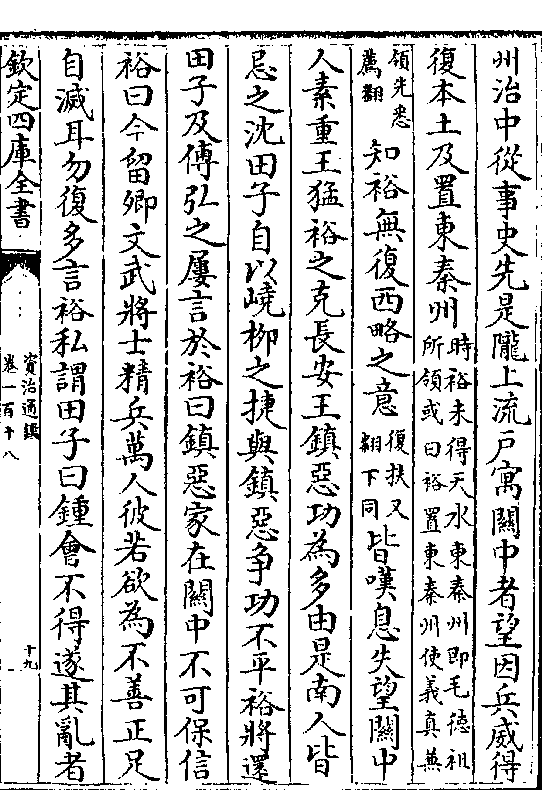 州治中從事史先是隴上流戶寓關中者望因兵威得
復本土及置東秦州時裕未得天水東秦州即毛德祖
所領或曰裕置東秦州使義真兼
領先悉
薦翻知裕無復西略之意復扶又
翻下同皆嘆息失望關中
人素重王猛裕之克長安王鎮惡功為多由是南人皆
忌之沈田子自以嶢柳之捷與鎮惡争功不平裕將還
田子及傅弘之屢言於裕曰鎮惡家在關中不可保信
裕曰今留卿文武將士精兵萬人彼若欲為不善正足
自滅耳勿復多言裕私謂田子曰鍾會不得遂其亂者
欽定四庫全書
資治通鑑
卷一百十八
十九